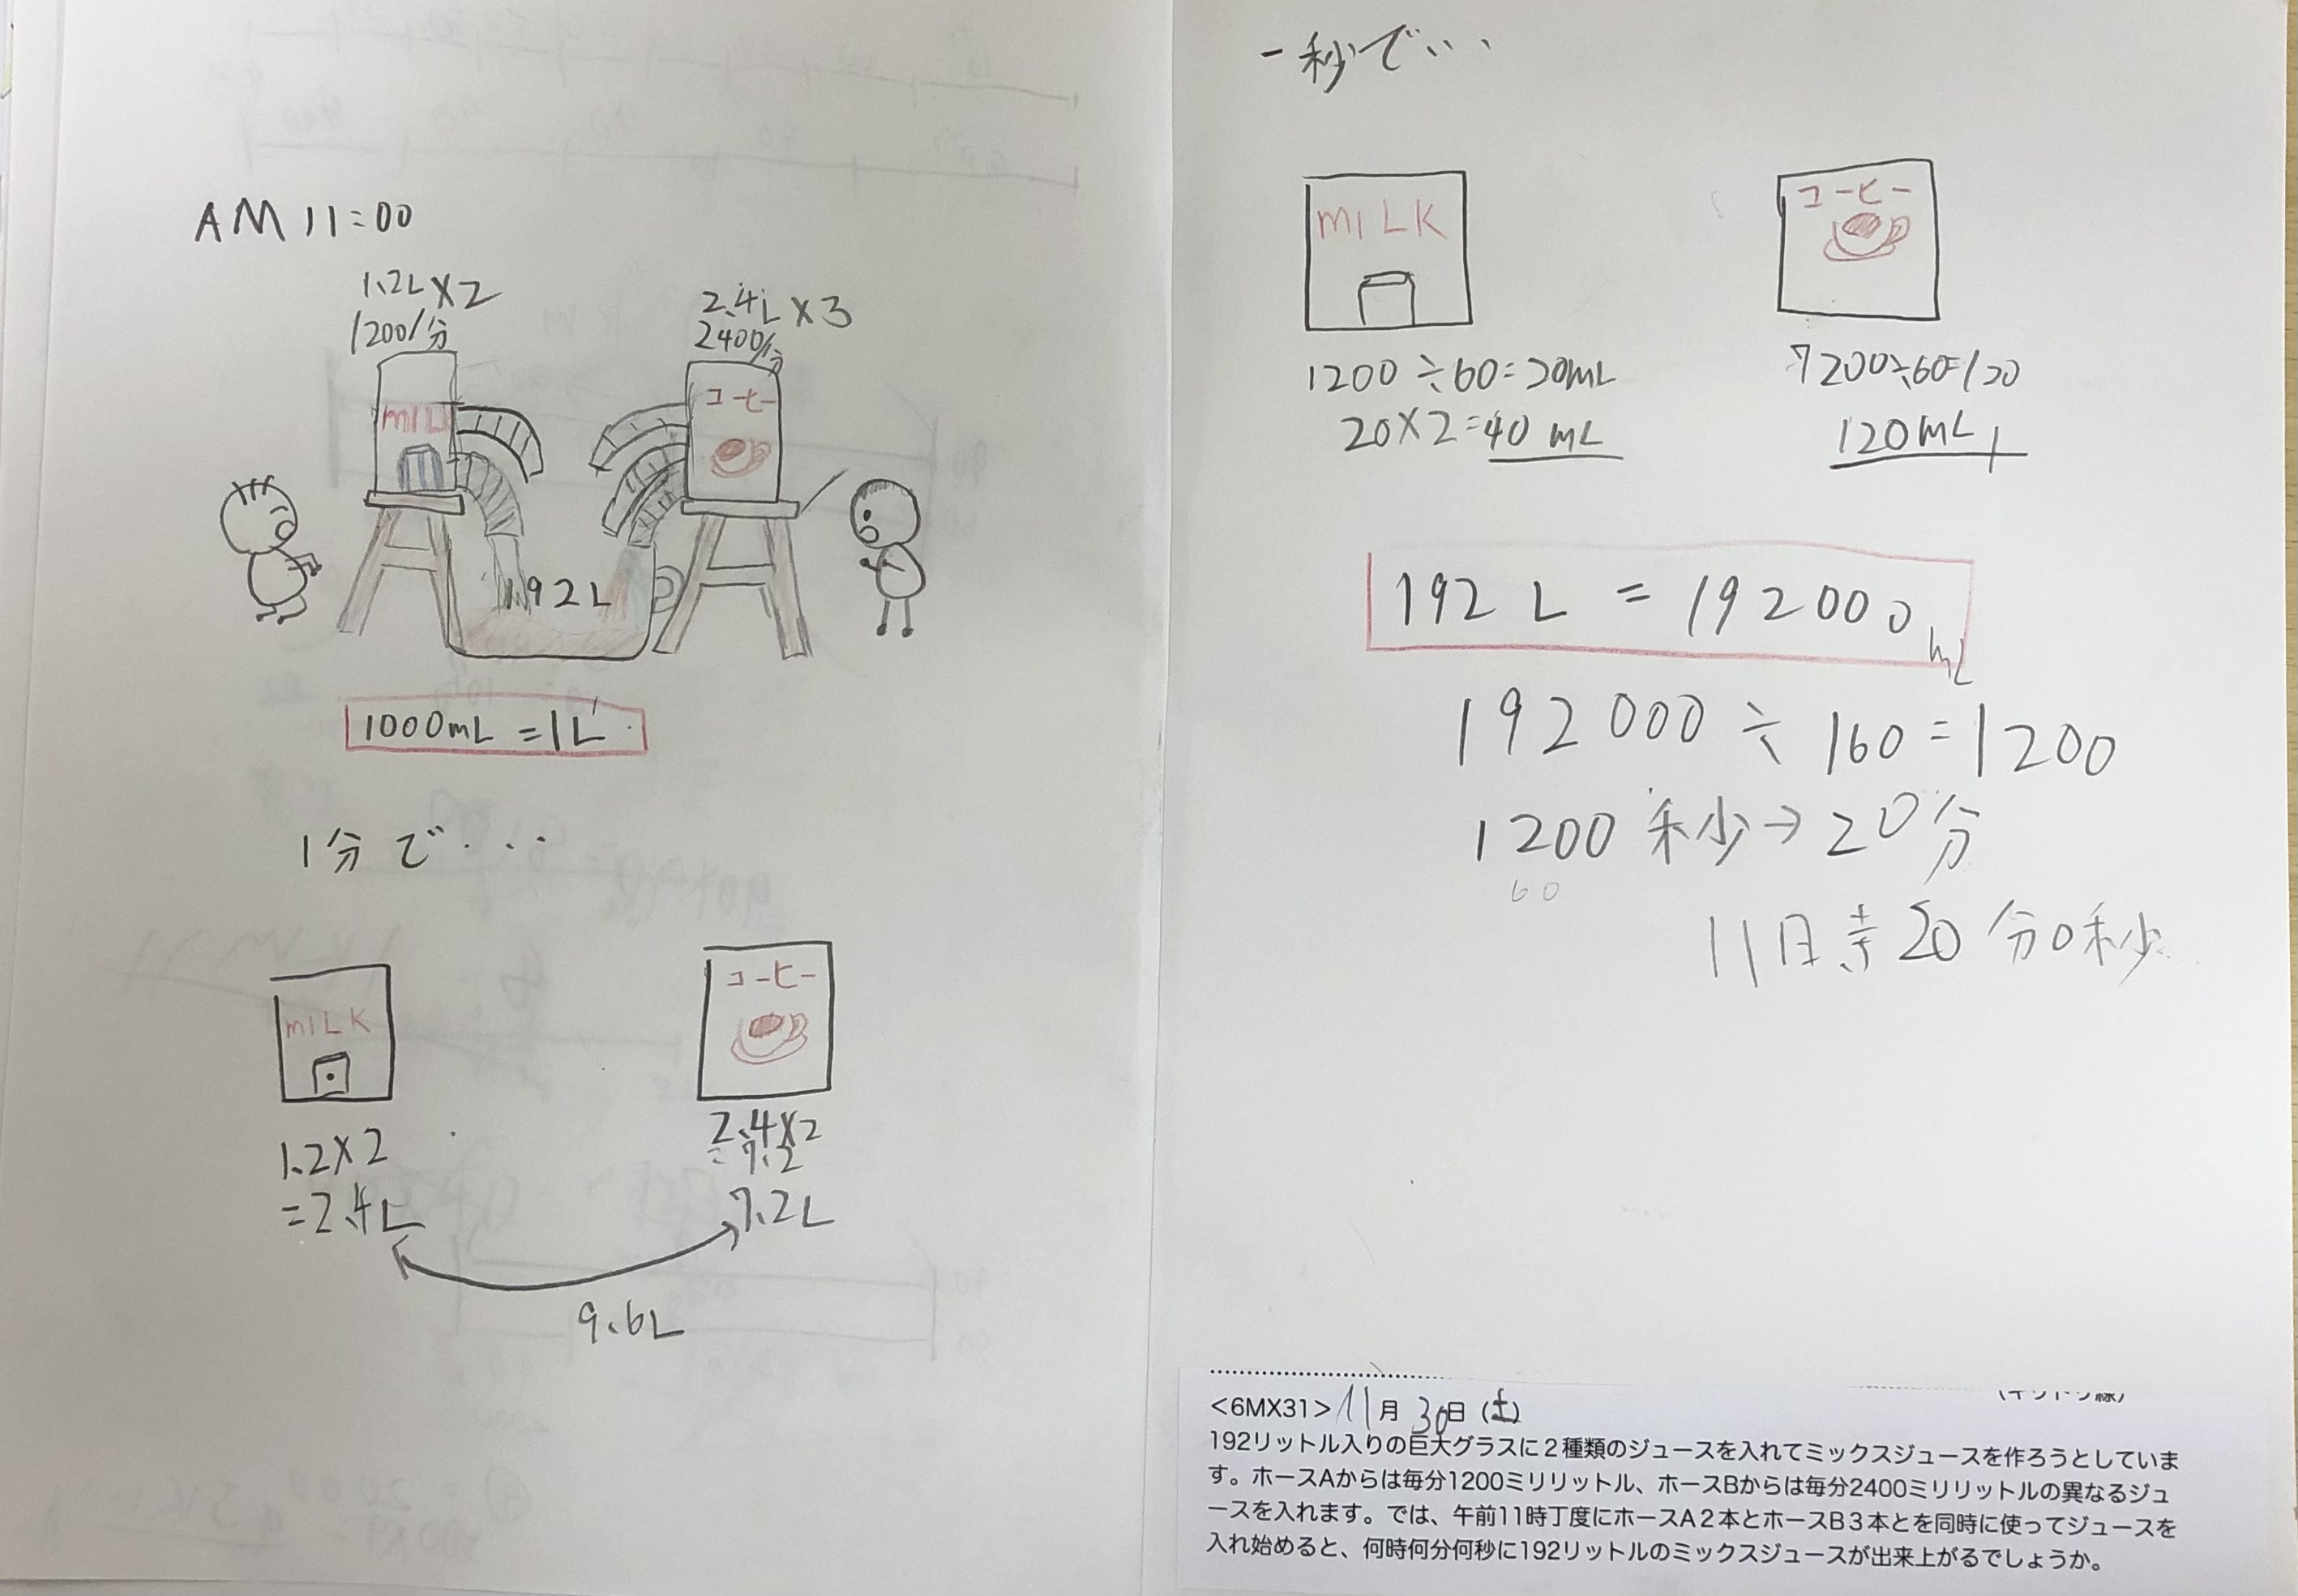 AM 11:00
1.2L×2
1200/分
2.4L×3
2400/分
MILK
コーヒー
192L
1000mL=1L
1分で・・・
MILK
コーヒー
1.2×2
=2.4L
2.4×2
=7.2
7.2L
9.6L
一秒で・・・
MILK
コーヒー
1200÷60=20mL
20×2=40mL
7200÷60=120
120mL
192L=192000mL
192000÷160=1200
1200秒→20分
60
11時20分0秒
<6MX31>11月30日(土)
192リットル入りの巨大グラスに2種類のジュースを入れてミックスジュースを作ろうとしていま
す。ホースAからは毎分1200ミリリットル、ホースBからは毎分2400ミリリットルの異なるジュ
ースを入れます。では、午前11時丁度にホースA2本とホースB3本とを同時に使ってジュースを
入れ始めると、何時何分何秒に192リットルのミックスジュースが出来上がるでしょうか。